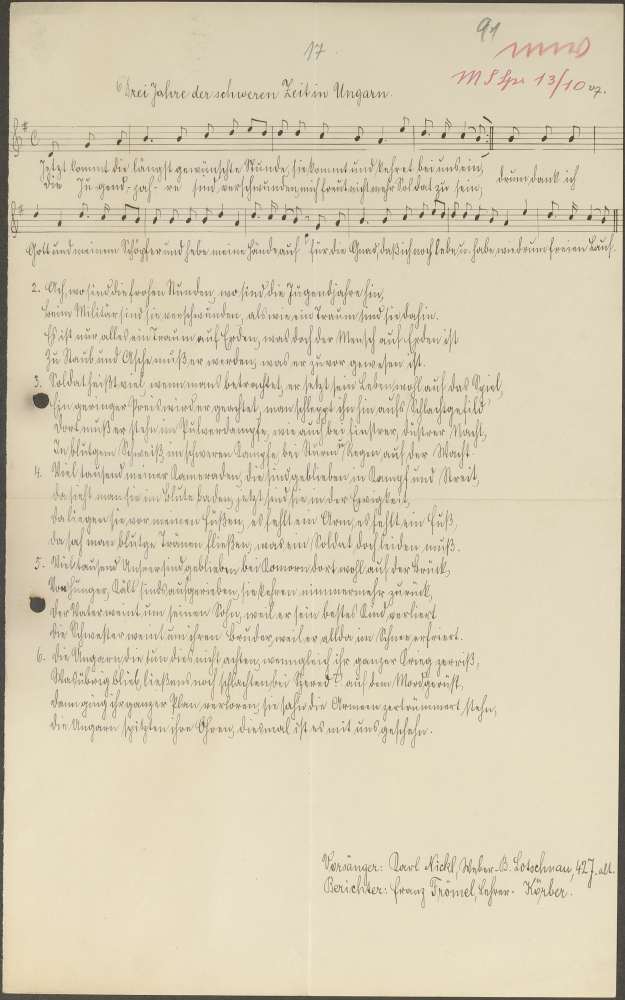 91
17.
MS Spr 13/10 07.
Drei Jahre der schweren Zeit in Ungarn.
Jetzt kommt die längst gewünschte Stunde, sie kommt und kehret bei uns ein,
die Ju-gend-jah-re sind verschwunden, mich freut nicht mehr Soldat zu sein; drum dank ich
Gott und meinem Schöpfer und hebe meine Hände auf für die Gnad, daß ich noch lebe, u. habe wiedrum freien Lauf.
2. Ach, wo sind die frohen Stunden, wo sind die Jugendjahre hin,
beim Militär sind sie verschwunden, als wie ein Traum sind sie dahin.
Es ist nur alles ein Traum auf Erden, was doch der Mensch auf Erden ist
Zu Staub und Asche muß er werden, was er zuvor gewesen ist.
3. Soldat heißt viel, wenn mans betrachtet, er setzt sein Lebenswohl auf das Spiel,
Ein geringer Preis wird er geachtet, man schleppt ihn hin aufs Schlachtgefild
Dort muß er stehn im Pulverdampfe, wie auch bei finstrer, düstrer Nacht,
In blutgem Schweiß, im schweren Kampfe bei Sturm u. Regen auf der Wacht.
4. Viel tausend meiner Kameraden, die sind geblieben in Kampf und Streit,
da sieht man sie im Blute baden, jetzt sind sie in der Ewigkeit,
da liegen sie vor meinen Füßen, es fehlt ein Arm, es fehlt ein Fuß,
da sah man blutge Tränen fließen, was ein Soldat doch leiden muß.
5. Viel tausend Unsrer sind geblieben bei Komorn dort wohl auf der Brück,
Von Hunger, Kält sinds aufgerieben, sie kehren nimmermehr zurück,
der Vater weint um seinen Sohn, weil er sein bestes Kind verliert
die Schwester weint um ihren Bruder, weil er allda im Schnee erfriert.
6. Die Ungarn, die tun dies nicht achten, wenngleich ihr ganzer Krieg zerriß,
Was übrig blieb, ließens noch schlachten bei Szered auf dem Mordgerüst,
dann ging ihr ganzer Plan verloren, sie sahn die Armeen zertrümmert stehn,
die Ungarn spitzten ihre Ohren, diesmal ist es mit uns geschehn.
Vorsänger: Karl Nickl, Weber-B. Lotschnau, 42 J. alt.
Berichter: Franz Trömel, Lehrer. Körber.